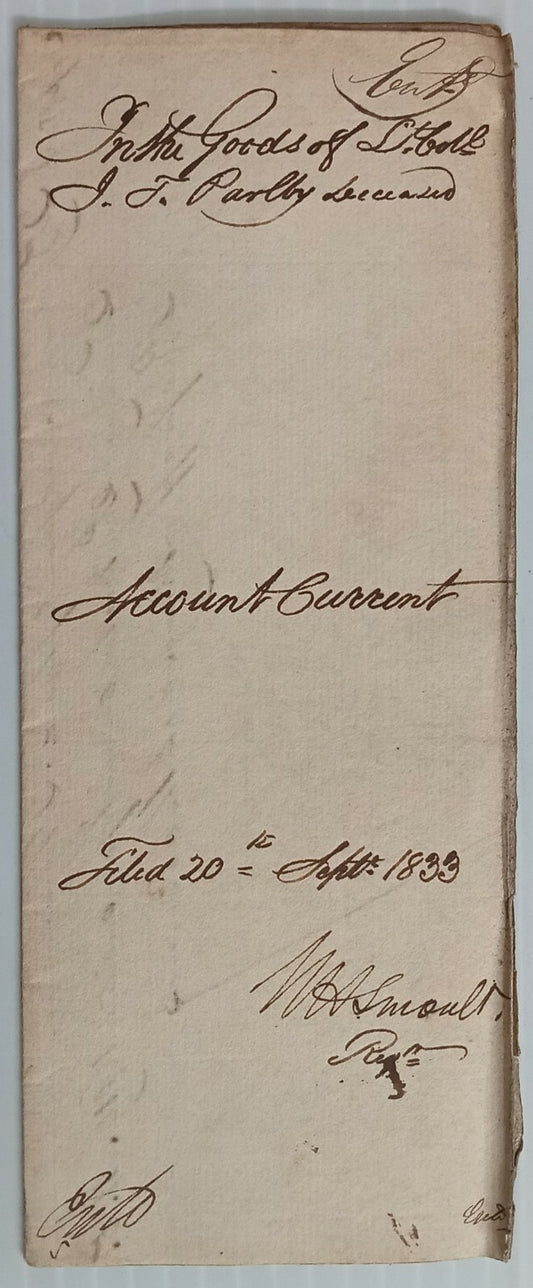 Entd
In the Goods of Lt. Coll
J. T. Parlby deceased
Account Current
Filed 20th Septr. 1833
W H Smoult.
Regr
Entd
Entd